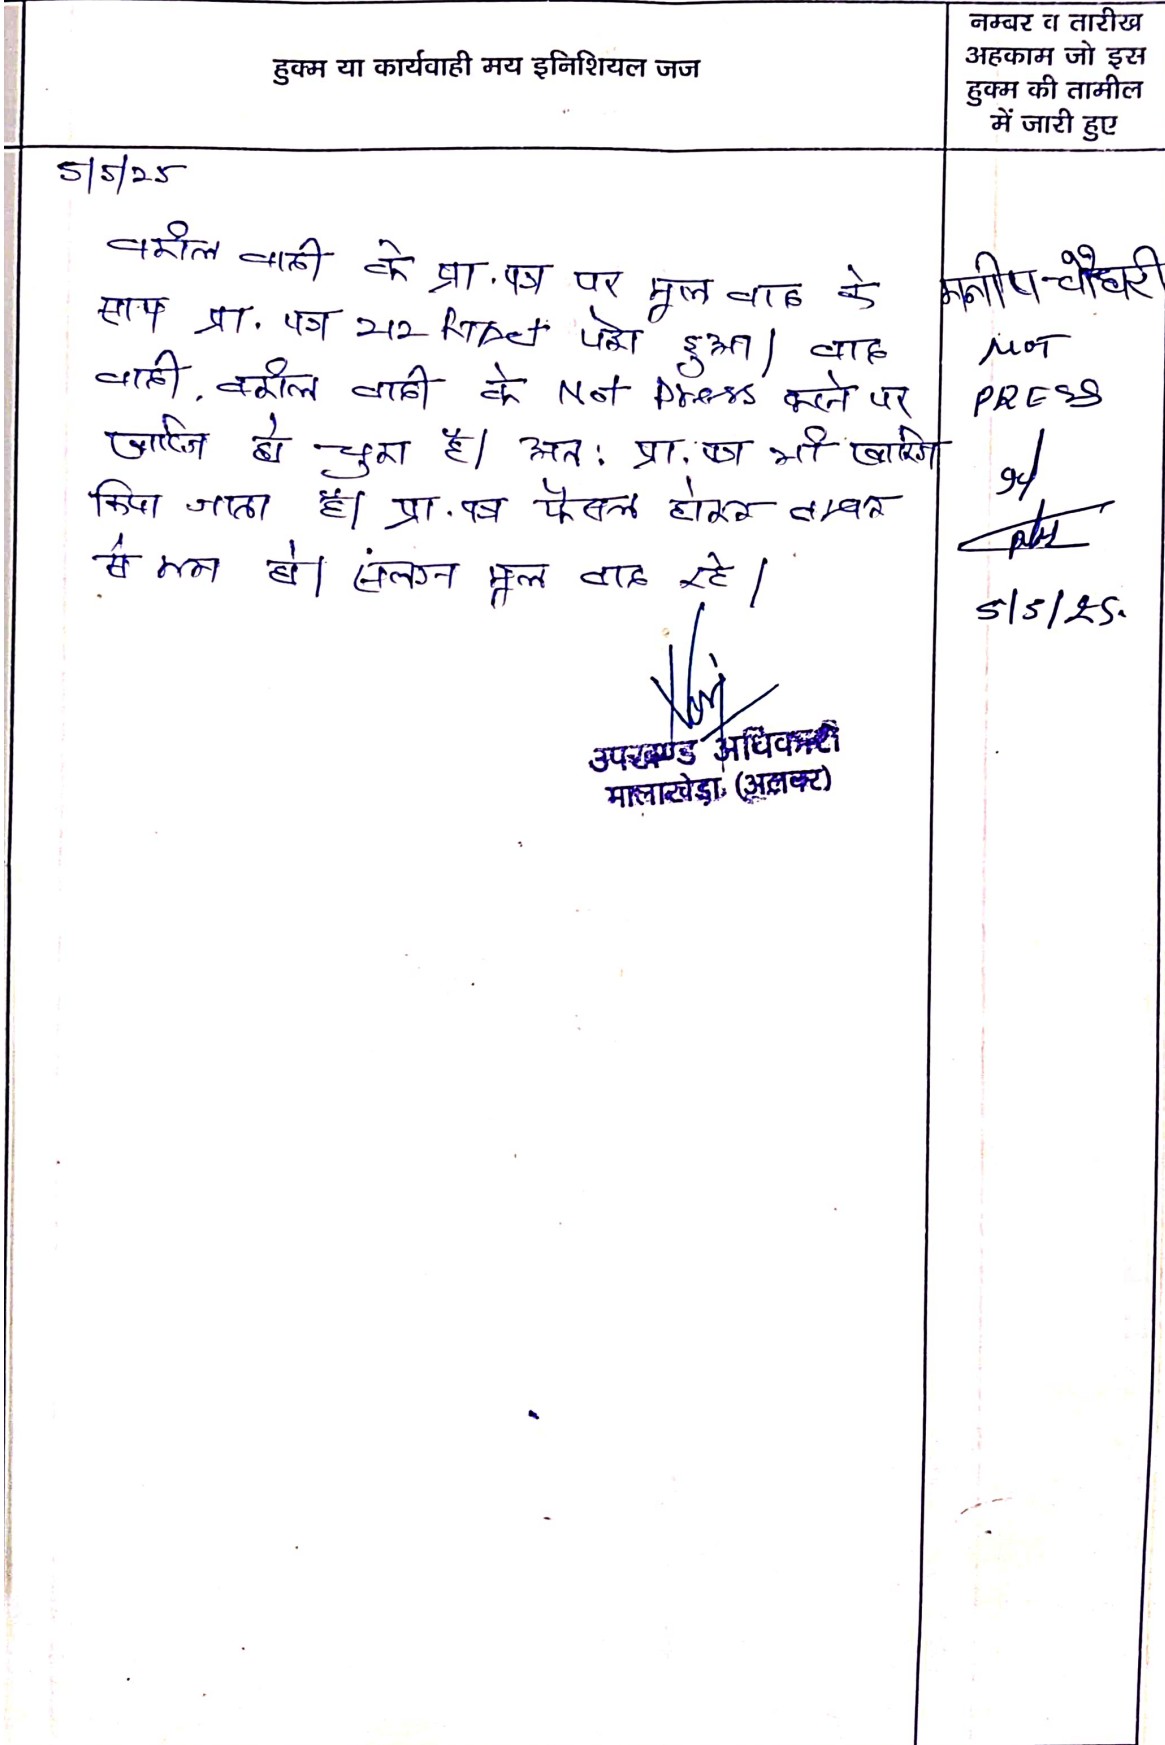 हुक्म या कार्यवाही मय इनिशियल जज
नम्बर व तारीख
अहकाम जो इस
हुक्म की तामील
में जारी हुए
5/5/25
वकील वादी के प्रा.पत्र पर मूल वाद के
साथ प्रा. पत्र 212 RTAct पेश हुआ। वाद
वादी, वकील वादी के Not Press करने पर
खारिज हो चुका है। अतः प्रा.पत्र भी खारिज
किया जाता है। प्रा.पत्र फैसल होकर नम्बर
से कम हो। संलग्न मूल वाद रहे।
उपखण्ड अधिकारी
मालाखेड़ा (अलवर)
मनीष चौधरी
NOT
PRESS
5/5/25.